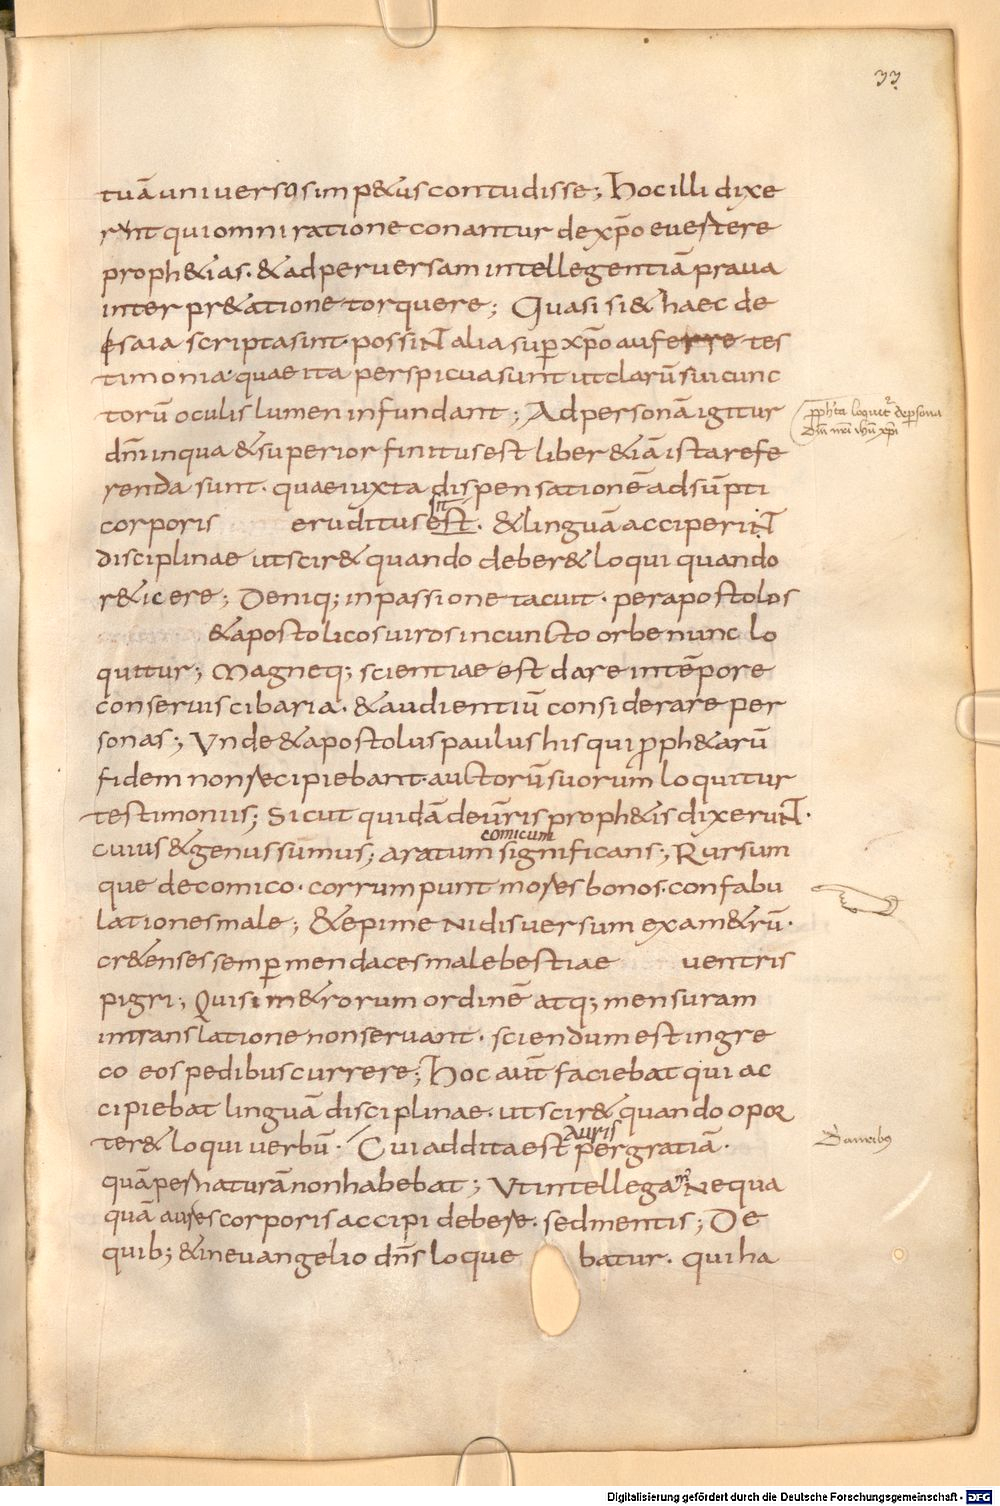 33
tuā universos impetus contudisse; Hoc illi dixe
runt qui omni ratione conantur de xp̄o evertere
prophetias. & ad perversam intellegentiā prava
interpretatione torquere; Quasi si & haec de
esaia scripta sint. possiNT alia super xp̄o auferre tes
timonia. quae ita perspicua sunt ut clarū sui cunc
torū oculis lumen infundant; Ad personā igitur
prophēta loquitr de persona
dn̄i in qua & superior finitus est liber & iā ista refe
dn̄i nr̄i ihū xp̄i
renda sunt. quae iuxta dispensationē adsūpti
sit
corporis eruditus est. & linguā acceperiNT
disciplinae ut sciret quando deberet loqui quando
reticere; Deniq; in passione tacuit. per apostolos
& apostolicos viros in cuncto orbe nunc lo
quitur; Magneq; scientiae est dare in tēpore
conservis cibaria. & audientiū considerare per
sonas; Unde & apostolus paulus his qui prophetarū
fidem non recipiebant. auctorū suorum loquitur
testimoniis; Sicut quidā de vr̄is prophetis dixeruNT.
comicum
cuius & genus sūmus; aratum significans; Rursum
que de comico. corrumpunt mores bonos. confabu
lationes male; & epimeNidis versum exametrū.
cretenses semper mendaces male bestiae ventris
pigri; Quis imetrorum ordinē atq; mensuram
in translatione non servant. sciendum est in gre
co eos pedibus currere; Hoc aūt faciebat qui ac
cipiebat linguā disciplinae. ut sciret quando opor
Auris
teret loqui verbū. Cui addita est per gratiā.
De auribus
quā per naturā non habebat; Ut intellegam Nequa
quā aures corporis accipi debere. sed mentis; De
quib; & in evangelio dn̄s loque batur. qui ha
Digitalisierung gefördert durch die Deutsche Forschungsgemeinschaft - DFG